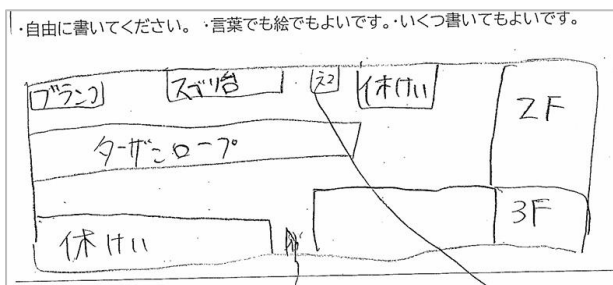 ・自由に書いてください。・言葉でも絵でもよいです。・いくつ書いてもよいです。
ブランコ
スベリ台
休けい
2F
ターザンロープ
3F
休けい